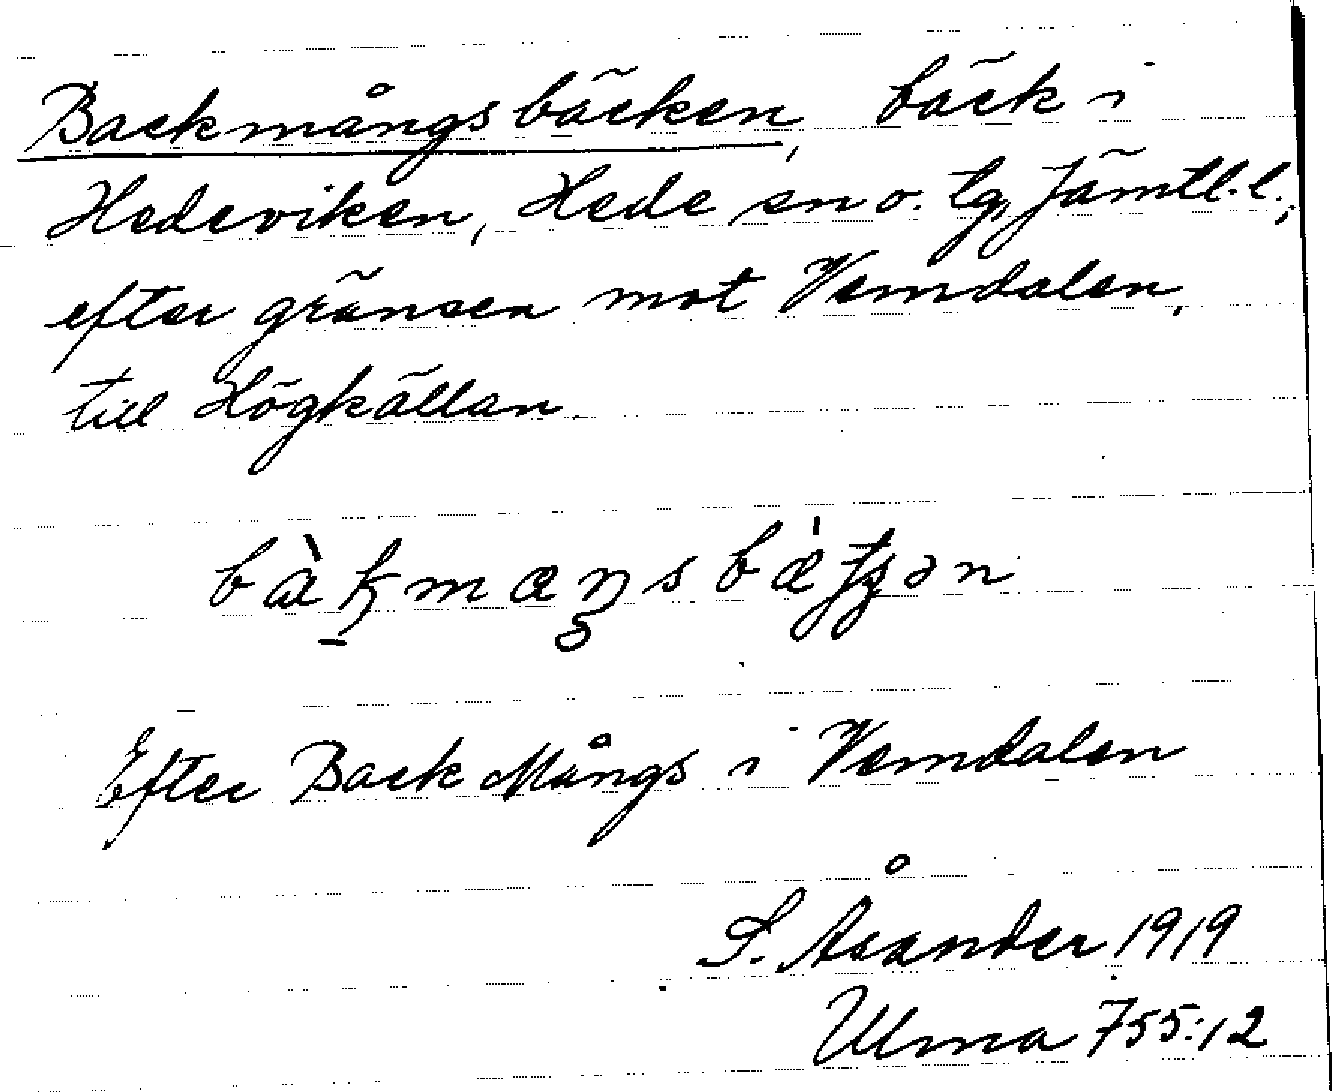 Backmångsbäcken, bäck i
Hedeviken, Hede sn o. tg, Jämtl. l.;
efter gränsen mot Vemdalen,
till Högkällan.
Efter Back Mångs i Vemdalen
S. Åsander 1919
Ulma 755:12